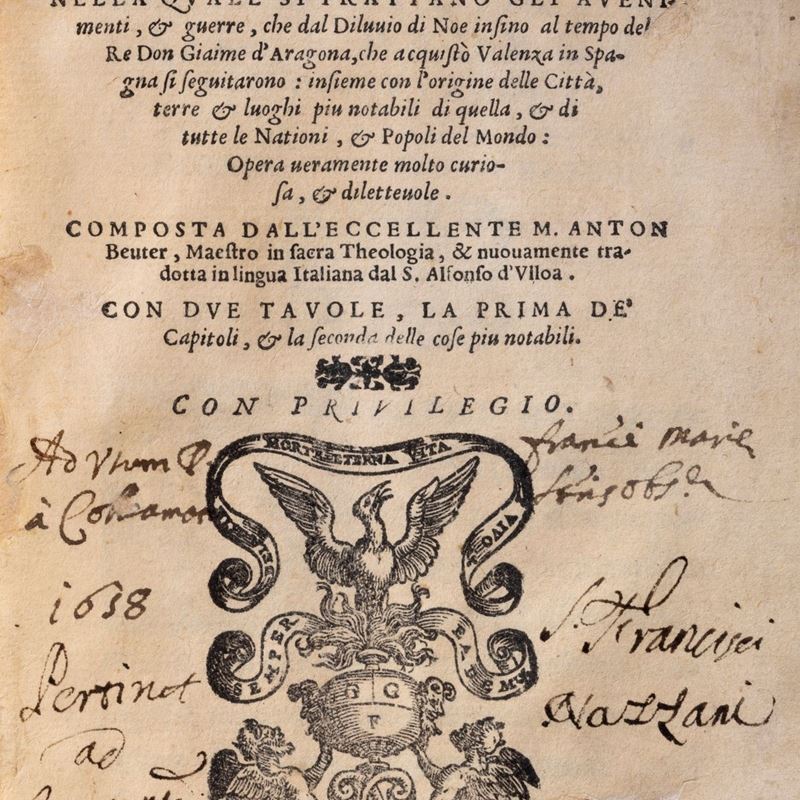 NELLA QVALE SI TRATTANO GLI AVENI-
menti, & guerre, che dal Diluuio di Noe insino al tempo del
Re Don Giaime d'Aragona, che acquistò Valenza in Spa-
gna si seguitarono : insieme con l'origine delle Città,
terre & luoghi piu notabili di quella, & di
tutte le Nationi, & Popoli del Mondo :
Opera ueramente molto curio-
sa, & diletteuole.
COMPOSTA DALL'ECCELLENTE M. ANTON
Beuter, Maestro in sacra Theologia, & nuouamente tra-
dotta in lingua Italiana dal S. Alfonso d'Vlloa.
CON DVE TAVOLE, LA PRIMA DE'
Capitoli, & la seconda delle cose piu notabili.
CON PRIVILEGIO.
MORTE ETERNA VITA
Ad Vsum
à
1638
SEMPER
G G
F
Pertinet
ad
S. Francisci
Nazzani